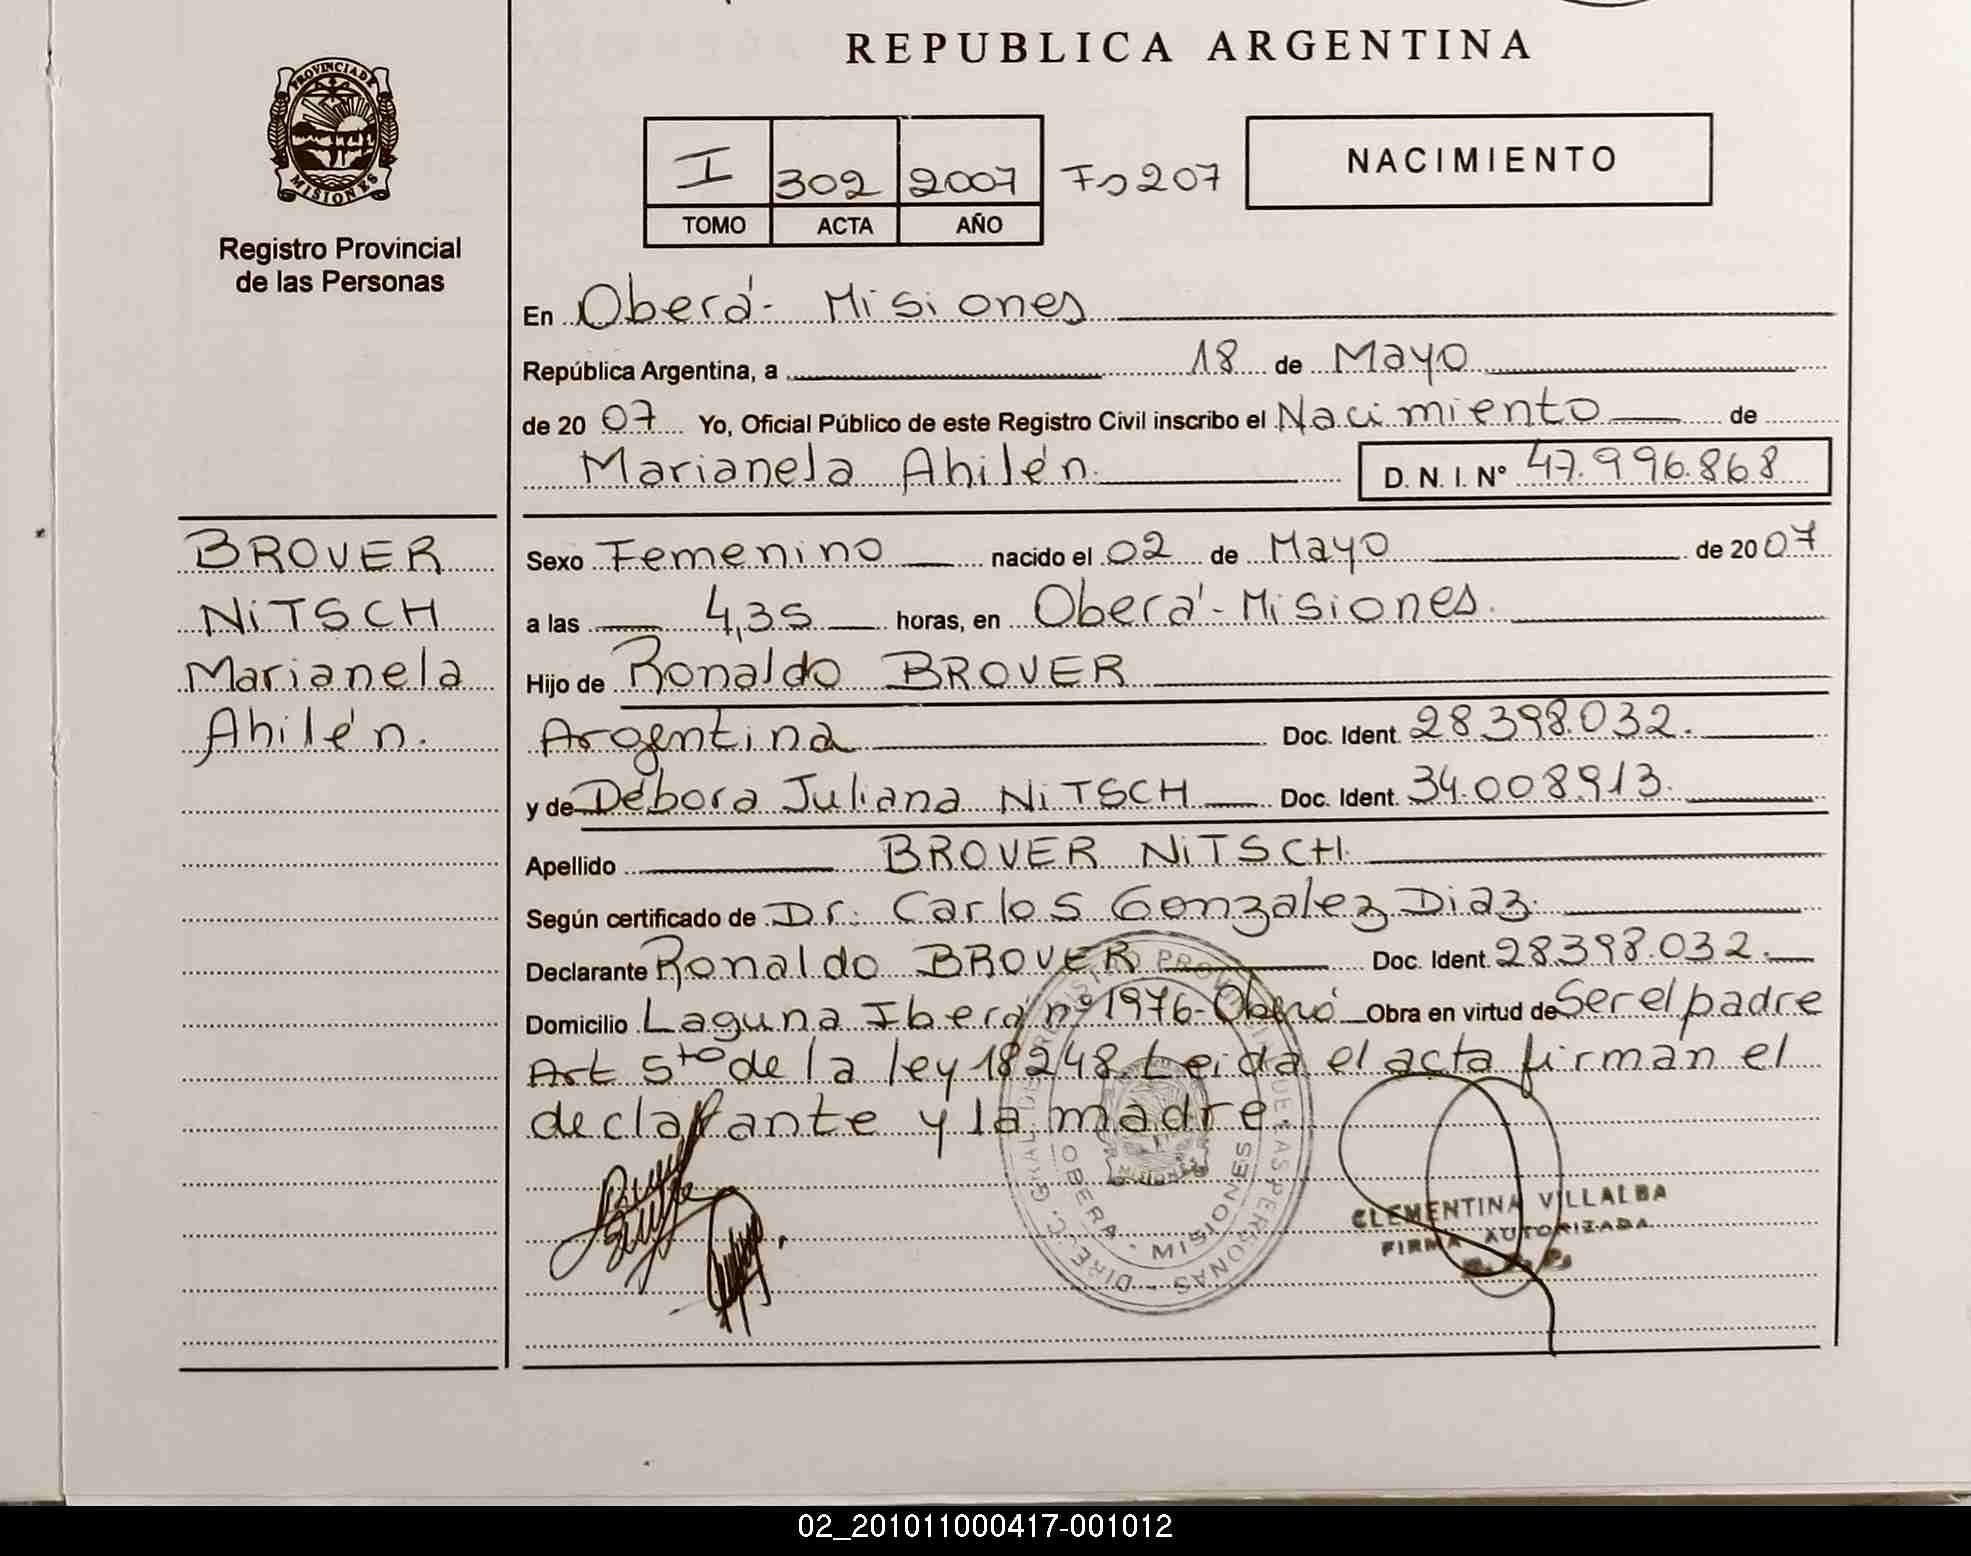 REPUBLICA ARGENTINA
PROVINCIA DE MISIONES
Registro Provincial
de las Personas
I 302 2007 Fo 207
TOMO ACTA AÑO
NACIMIENTO
En Oberá - Misiones
República Argentina, a 18 de Mayo
de 20 07 Yo, Oficial Público de este Registro Civil inscribo el Nacimiento de
Marianela Ahilén. D. N. I. Nº 47.996.868
BROVER
NiTSCH
Marianela
Ahilén.
Sexo Femenino nacido el 02 de Mayo de 20 07
a las 4,35 horas, en Oberá - Misiones.
Hijo de Ronaldo BROVER
Argentina Doc. Ident. 28.398.032.
y de Débora Juliana NiTSCH Doc. Ident. 34.008.913.
Apellido BROVER NiTSCH.
Según certificado de Dr. Carlos Gonzalez Diaz.
Declarante Ronaldo BROVER Doc. Ident. 28.398.032.
Domicilio Laguna Iberá nº 1976 - Oberá Obra en virtud de Ser el padre
Art 5to de la ley 18248 Leida el acta firman el
declarante y la madre.
OBERA - MISIONES
CLEMENTINA VILLALBA
FIRMA AUTORIZADA
02_201011000417-001012